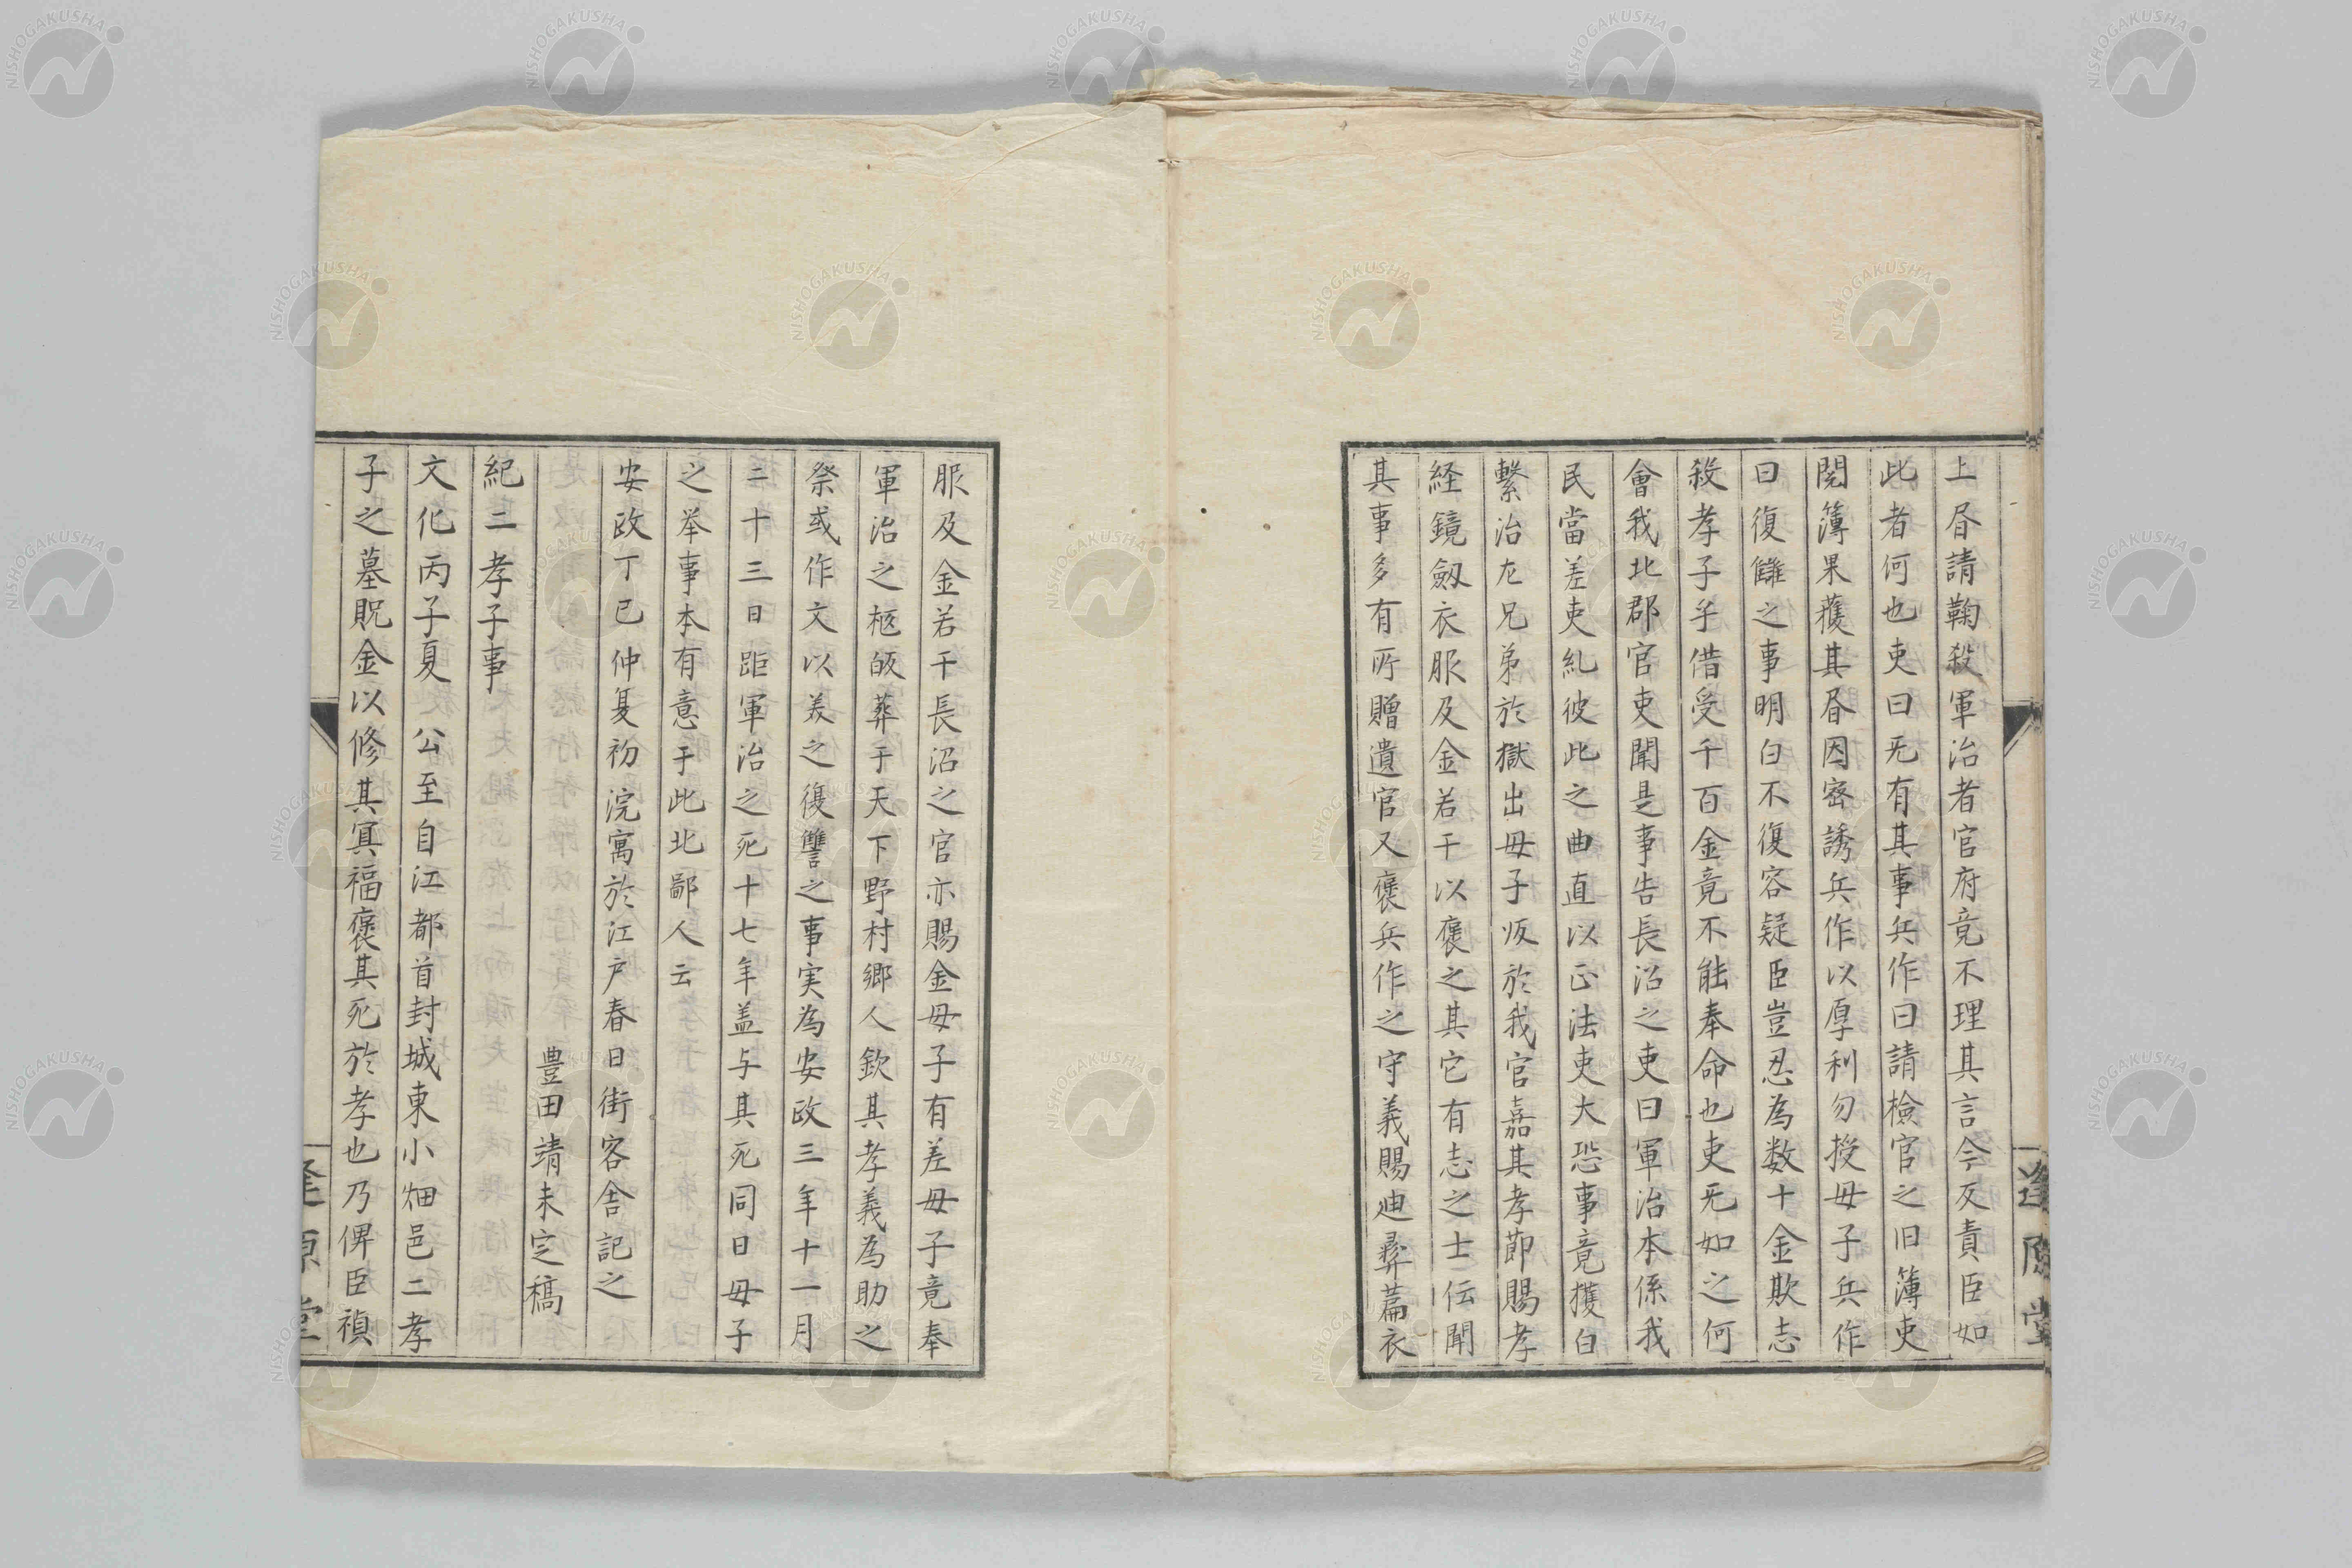 上昏請鞠殺軍治者官府竟不理其言今反責臣如
此者何也吏曰无有其事兵作曰請檢官之旧薄吏
閱簿果獲其昏因密誘兵作以厚利勿授母子兵作
曰復雠之事明白不復容疑臣豈忍為数十金欺志
殺孝子乎借受千百金竟不能奉命也吏无如之何
會我北郡官吏聞是事告長沼之吏曰軍治本係我
民當差吏糺彼此之曲直以正法吏大恐事竟獲白
繫治左兄弟於獄出母子㱕於我官嘉其孝節賜孝
経鏡劔衣服及金若干以褒之其它有志之士伝聞
其事多有所贈遺官又褒兵作之守義賜迪彛篇衣
服及金若干長沼之官亦賜金母子有差母子竟奉
軍治之柩皈葬于天下野村郷人欽其孝義為助之
祭或作文以美之復讐之事実為安政三年十一月
二十三日距軍治之死十七年盖与其死同日母子
之举事本有意于此北鄙人云
安政丁巳仲夏初浣寓於江戸春日街客舎記之
豊田靖未定稿
紀二孝子事
文化丙子夏 公至自江都首封城東小畑邑二孝
子之墓貺金以修其冥福褒其死於孝也乃俾臣禎
逢原堂
逢原堂
NISHOGAKUSHA